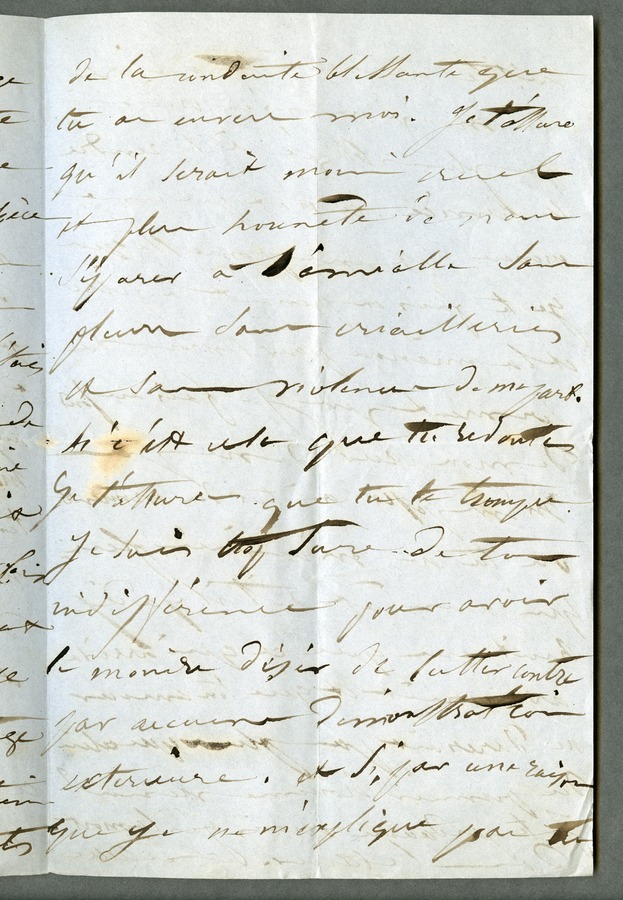 de la conduite blessante que
tu as envers moi. Je t'assure
qu'il serait moins cruel
et plus honnête de nous
séparer à l'amiable sans
pleurs sans criailleries
et sans violence de ma part.
si c'est cela que tu redoutes
Je t'assure que tu te trompe.
Je suis trop sure de ton
indifférence pour avoir
le moindre désir de lutter contre
par aucune démonstration
exterieure. et si, par une raison
que je ne m'explique pas tu